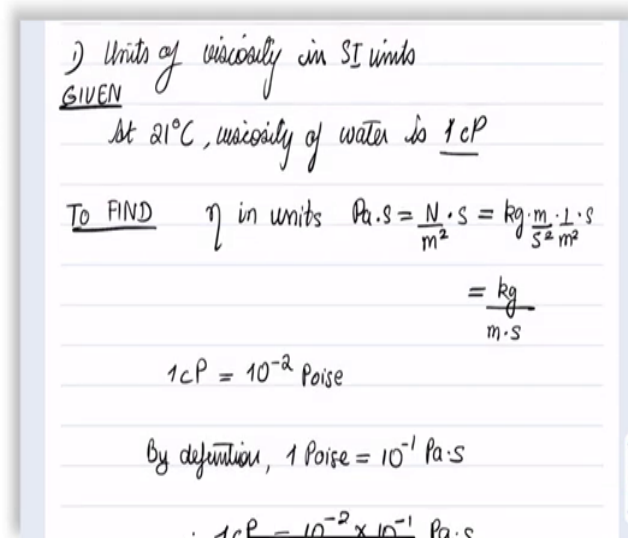 1) Units of viscosity in SI units
GIVEN
At 21°C, viscosity of water is 1 cP
TO FIND η in units Pa.s = N/m² · s = kg · m/s² · 1/m² · s
= kg/m·s
1cP = 10⁻² Poise
By defintion, 1 Poise = 10⁻¹ Pa·s
∴ 1cP = 10⁻² × 10⁻¹ Pa.s